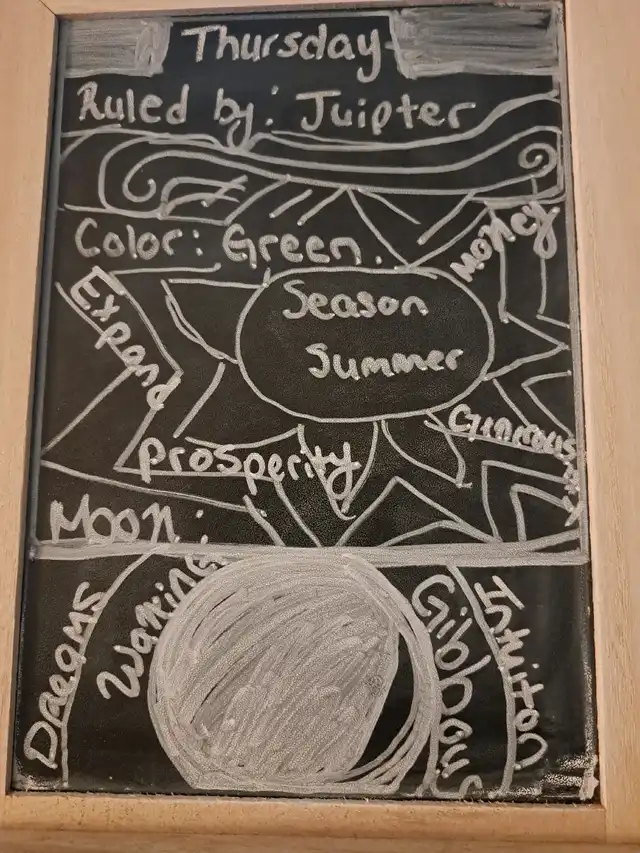 Thursday
Ruled by: Juipter
Color: Green.
Money
Expand
Season
Summer
Ginirous
Prosperity
Moon:
Daeams
Waning
Gibbous
Intuiton